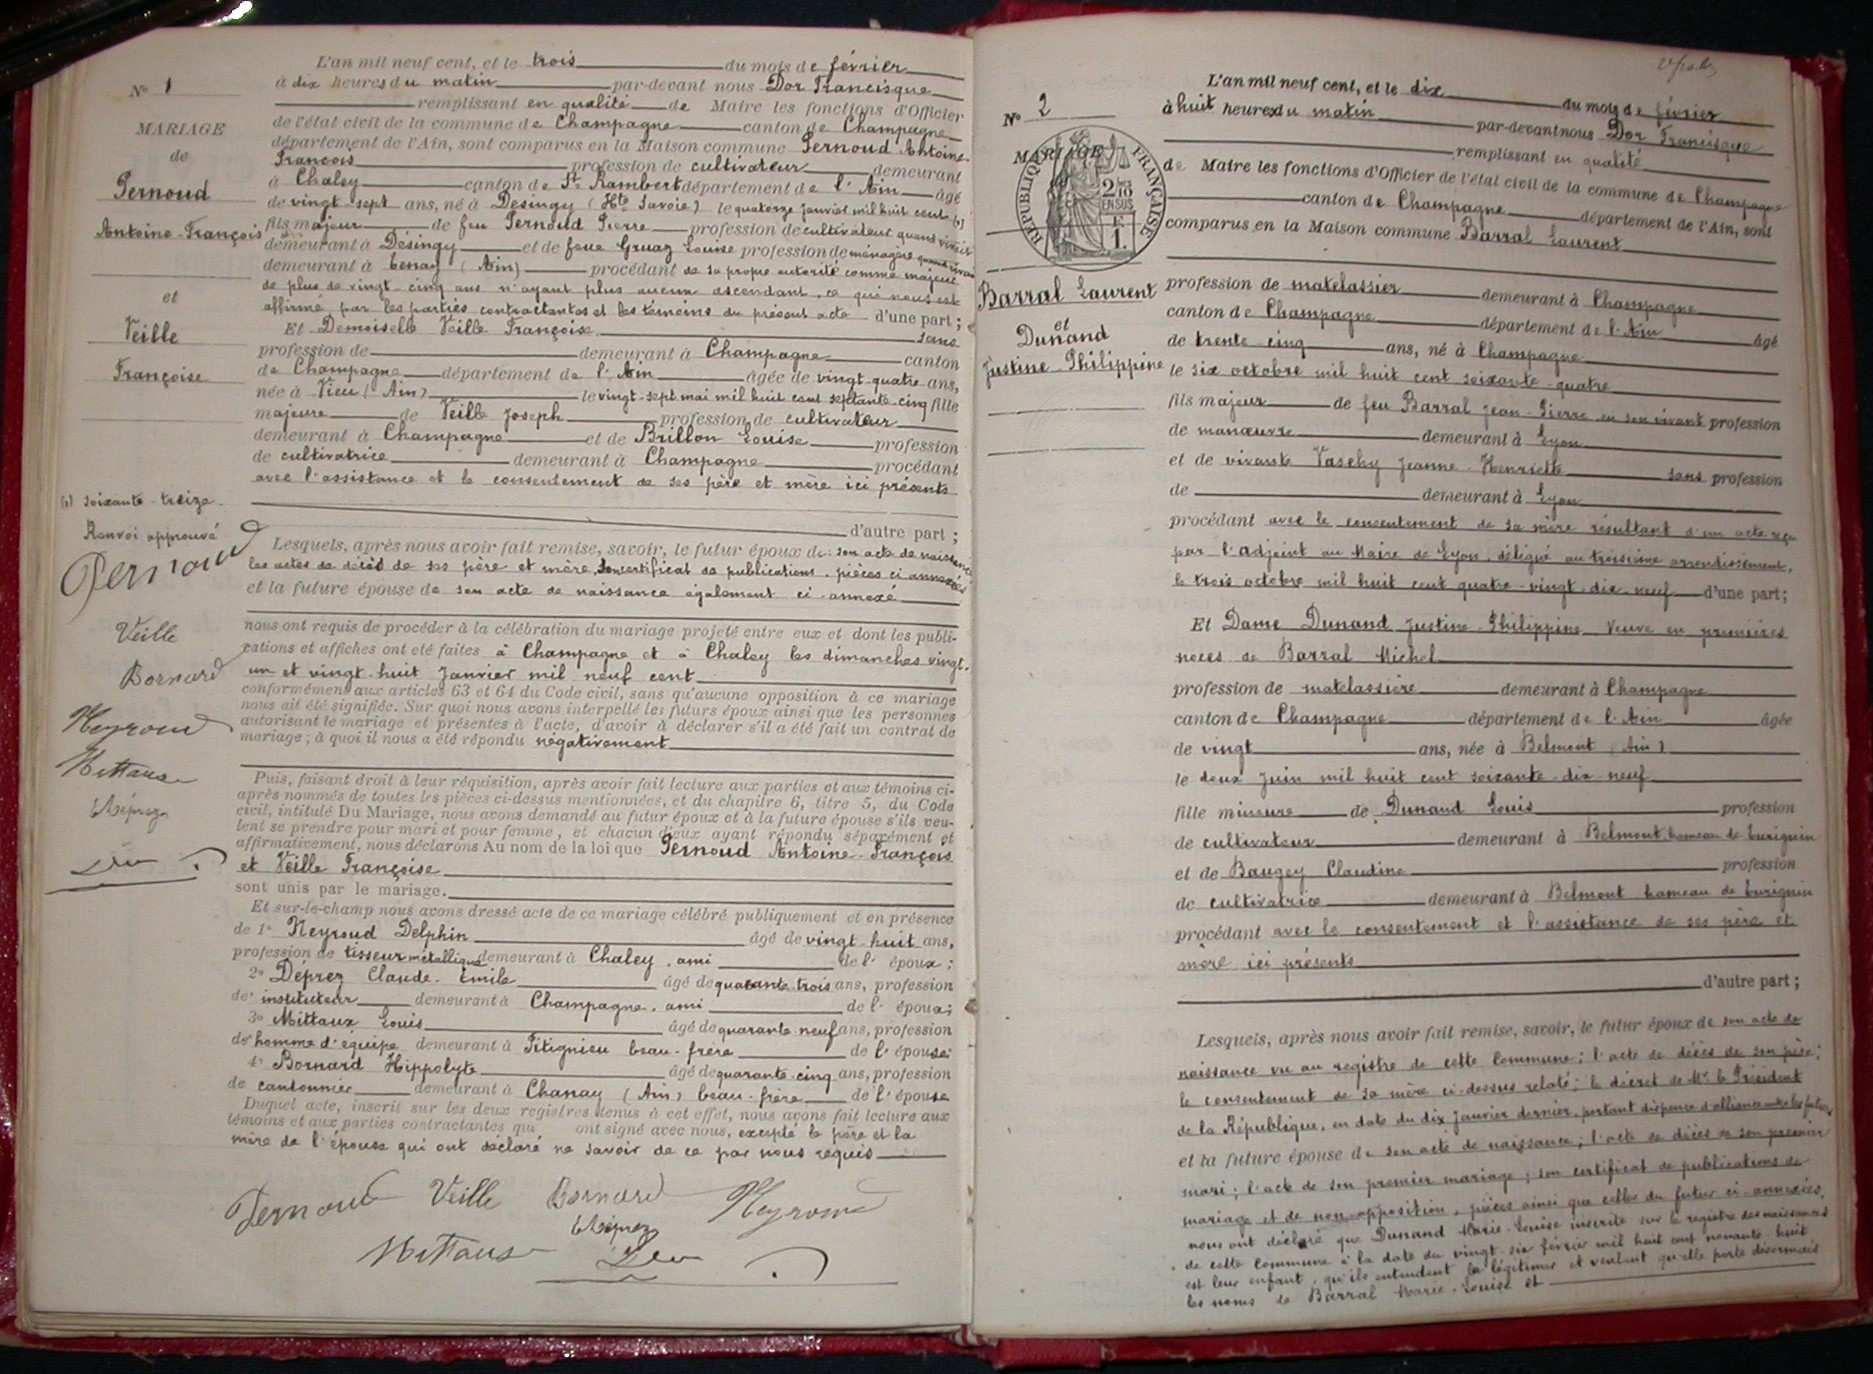 L'an mil neuf cent, et le trois du mois de février
Nº 1
à dix heures du matin par-devant nous Dor Francisque
remplissant en qualité de Maire les fonctions d'Officier
MARIAGE
de l'état civil de la commune de Champagne canton de Champagne
département de l'Ain, sont comparus en la Maison commune Pernoud Antoine
de
François profession de cultivateur demeurant
à Chaley canton de St Rambert département de l'Ain âgé
Pernoud
de vingt-sept ans, né à Desingy (Hte Savoie) le quatorze janvier mil huit cent (1)
fils majeur de feu Pernoud Pierre profession de cultivateur quand vivait
Antoine-François
demeurant à Désingy et de feue Gruaz Louise profession de ménagère quand vivait
demeurant à Tenay (Ain) procédant de sa propre autorité comme majeur
de plus de vingt-cinq ans n'ayant plus aucun ascendant, ce qui nous est
et
affirmé par les parties contractantes et les témoins du présent acte d'une part ;
Veille
Et Demoiselle Veille Françoise sans
profession de demeurant à Champagne canton
Françoise
de Champagne département de l'Ain âgée de vingt-quatre ans,
née à Vieu (Ain) le vingt-sept mai mil huit cent septante-cinq fille
majeure de Veille Joseph profession de cultivateur
demeurant à Champagne et de Brillon Louise profession
de cultivatrice demeurant à Champagne procédant
avec l'assistance et le consentement de ses père et mère ici présents
(1) soixante-treize.
d'autre part ;
Renvoi approuvé
Pernoud
Lesquels, après nous avoir fait remise, savoir, le futur époux de : son acte de naissance
les actes de décès de ses père et mère, son certificat de publications, pièces ci annexées
et la future épouse de son acte de naissance également ci-annexé
nous ont requis de procéder à la célébration du mariage projeté entre eux et dont les publi-
Veille
cations et affiches ont été faites à Champagne et à Chaley les dimanches vingt-
Bornard
un et vingt-huit Janvier mil neuf cent
conformément aux articles 63 et 64 du Code civil, sans qu'aucune opposition à ce mariage
nous ait été signifiée. Sur quoi nous avons interpellé les futurs époux ainsi que les personnes
Neyroud
autorisant le mariage et présentes à l'acte, d'avoir à déclarer s'il a été fait un contrat de
mariage ; à quoi il nous a été répondu négativement
Mittaux
Puis, faisant droit à leur réquisition, après avoir fait lecture aux parties et aux témoins ci-
après nommés de toutes les pièces ci-dessus mentionnées, et du chapitre 6, titre 5, du Code
Déprez
civil, intitulé Du Mariage, nous avons demandé au futur époux et à la future épouse s'ils veu-
lent se prendre pour mari et pour femme, et chacun d'eux ayant répondu séparément et
affirmativement, nous déclarons Au nom de la loi que Pernoud Antoine-François
Dor
et Veille Françoise
sont unis par le mariage.
Et sur-le-champ nous avons dressé acte de ce mariage célébré publiquement et en présence
de 1º Neyroud Delphin âgé de vingt-huit ans,
profession de tisseur métallique demeurant à Chaley, ami de l' époux ;
2º Déprez Claude-Emile âgé de quarante-trois ans, profession
de instituteur demeurant à Champagne, ami de l' époux ;
3º Mittaux Louis âgé de quarante-neuf ans, profession
de homme d'équipe demeurant à Titignieu beau-frère de l'épouse ;
4º Bornard Hippolyte âgé de quarante-cinq ans, profession
de cantonnier demeurant à Chanay (Ain) beau-frère de l'épouse
Duquel acte, inscrit sur les deux registres tenus à cet effet, nous avons fait lecture aux
témoins et aux parties contractantes qui ont signé avec nous, excepté le père et la
mère de l'épouse qui ont déclaré ne savoir de ce par nous requis
Pernoud Veille Bornard Neyroud
Déprez
Mittaux Dor
L'an mil neuf cent, et le dix du mois de février
Nº 2
à huit heures du matin par-devant nous Dor Francisque
remplissant en qualité
MARIAGE
RÉPUBLIQUE FRANÇAISE
2 10
EN SUS
E
1.
de Maire les fonctions d'Officier de l'état civil de la commune de Champagne
canton de Champagne département de l'Ain, sont
comparus en la Maison commune Barral Laurent
Barral Laurent
profession de matelassier demeurant à Champagne
canton de Champagne département de l'Ain âgé
et
Dunand
de trente-cinq ans, né à Champagne
Justine-Philippine
le six octobre mil huit cent soixante-quatre
fils majeur de feu Barral Jean-Pierre en son vivant profession
de manœuvre demeurant à Lyon
et de vivante Vaschy Jeanne-Henriette sans profession
de demeurant à Lyon
procédant avec le consentement de sa mère résultant d'un acte reçu
par l'adjoint au Maire de Lyon, délégué au troisième arrondissement,
le trois octobre mil huit cent quatre-vingt-dix-neuf d'une part ;
Et Dame Dunand Justine-Philippine veuve en premières
noces de Barral Michel
profession de matelassière demeurant à Champagne
canton de Champagne département de l'Ain âgée
de vingt ans, née à Belmont (Ain)
le deux Juin mil huit cent soixante-dix-neuf
fille mineure de Dunand Louis profession
de cultivateur demeurant à Belmont hameau de Lurignin
et de Baugey Claudine profession
de cultivatrice demeurant à Belmont hameau de Lurignin
procédant avec le consentement et l'assistance de ses père et
mère ici présents
d'autre part ;
Lesquels, après nous avoir fait remise, savoir, le futur époux de son acte de
naissance vu au registre de cette Commune ; l'acte de décès de son père ;
le consentement de sa mère ci-dessus relaté ; le décret de Mr le Président
de la République, en date du dix janvier dernier, portant dispense d'alliance entre les futurs
et la future épouse de son acte de naissance ; l'acte de décès de son premier
mari ; l'acte de son premier mariage ; son certificat de publications de
mariage et de non-opposition, pièces ainsi que celles du futur ci-annexées,
nous ont déclaré que Dunand Marie-Louise inscrite sur le registre des naissances
de cette Commune à la date du vingt-six février mil huit cent nonante-huit
est leur enfant, qu'ils entendent la légitimer et veulent qu'elle porte désormais
les noms de Barral Marie-Louise et